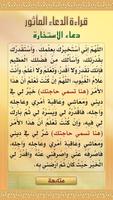 قراءة الدعاء المأثور
دعاء الاستخارة
اللَّهُمَّ إِنِّي أَسْتَخِيرُكَ بِعِلْمِكَ، وَأَسْتَقْدِرُكَ
بِقُدْرَتِكَ، وَأَسْأَلُكَ مِنْ فَضْلِكَ الْعَظِيمِ
فَإِنَّكَ تَقْدِرُ وَلا أَقْدِرُ، وَتَعْلَمُ وَلا أَعْلَمُ، وَأَنْتَ
عَلامُ الْغُيُوبِ، اللَّهُمَّ إِنْ كُنْتَ تَعْلَمُ أَنَّ هَذَا
الأَمْرَ (هنا تسمي حاجتك) خَيْرٌ لِي فِي
دِينِي وَمَعَاشِي وَعَاقِبَةِ أَمْرِي وَعَاجِلِهِ
وَآجِلِهِ، فَاقْدُرْهُ لِي وَيَسِّرْهُ لِي ثُمَّ بَارِكْ لِي
فِيهِ، وَإِنْ كُنْتَ تَعْلَمُ أَنَّ هَذَا الأَمْرَ
(هنا تسمي حاجتك) شَرٌّ لِي فِي دِينِي
وَمَعَاشِي وَعَاقِبَةِ أَمْرِي وَعَاجِلِهِ وَآجِلِهِ،
فَاصْرِفْهُ عَنِّي وَاصْرِفْنِي عَنْهُ وَاقْدُرْ لِي
الْخَيْرَ حَيْثُ كَانَ ثُمَّ أَرْضِنِي بِهِ
متابعة